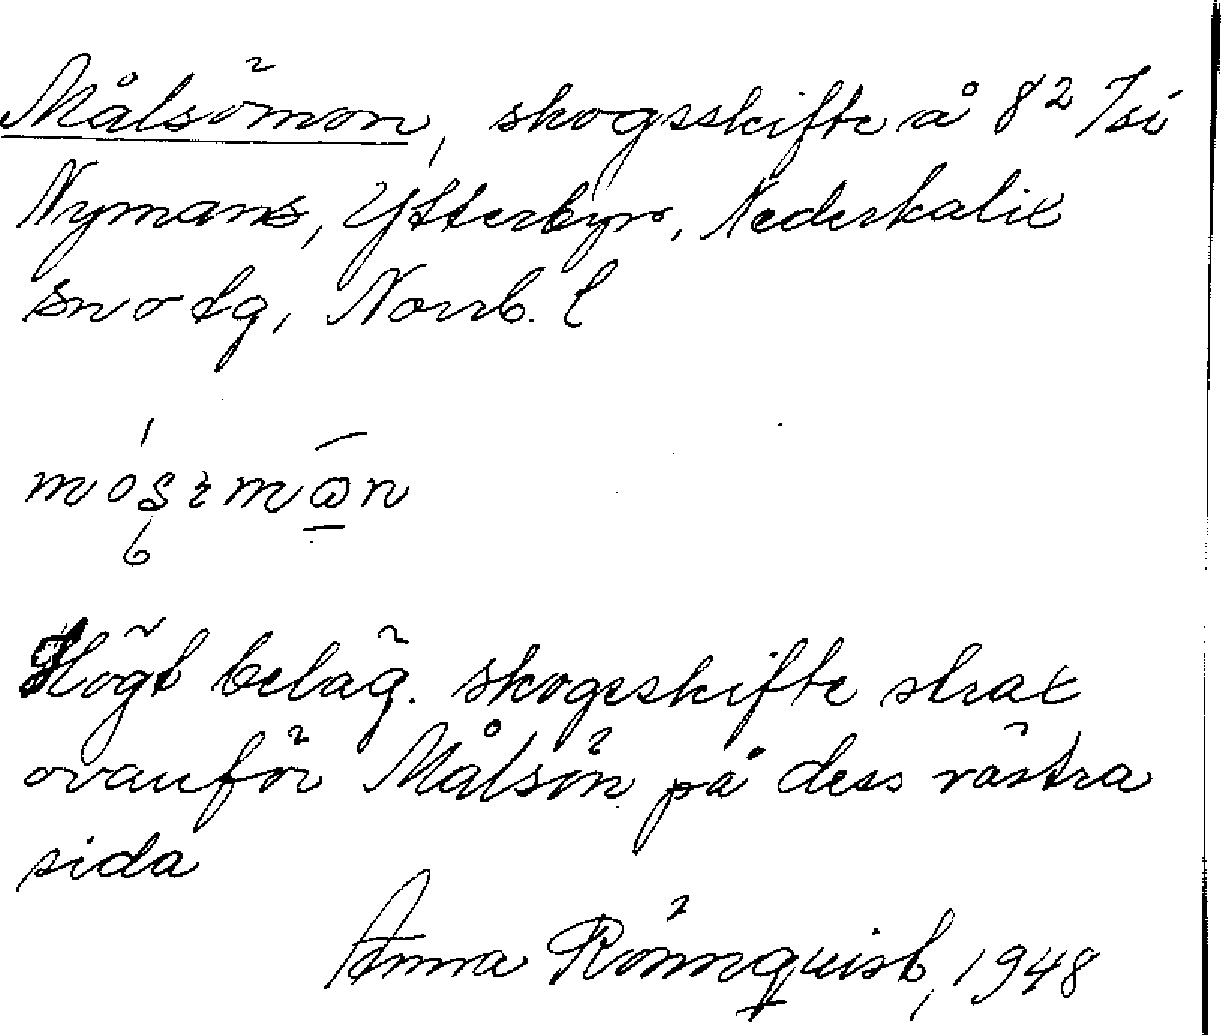 Målsömon, skogsskifte å 8²
Nymans, Ytterbyn, Nederkalix
sn o tg, Norrb. l
Högt beläg. skogsskifte strax
ovanför Målsön på dess västra
sida
Anna Rönnquist, 1948